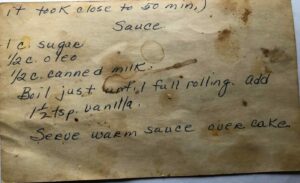 it took close to 50 min.)
Sauce
1 c sugar
1/2 c oleo
1/2 c. canned milk.
Boil just until full rolling. add
1 1/2 tsp. vanilla.
Serve warm sauce over cake.